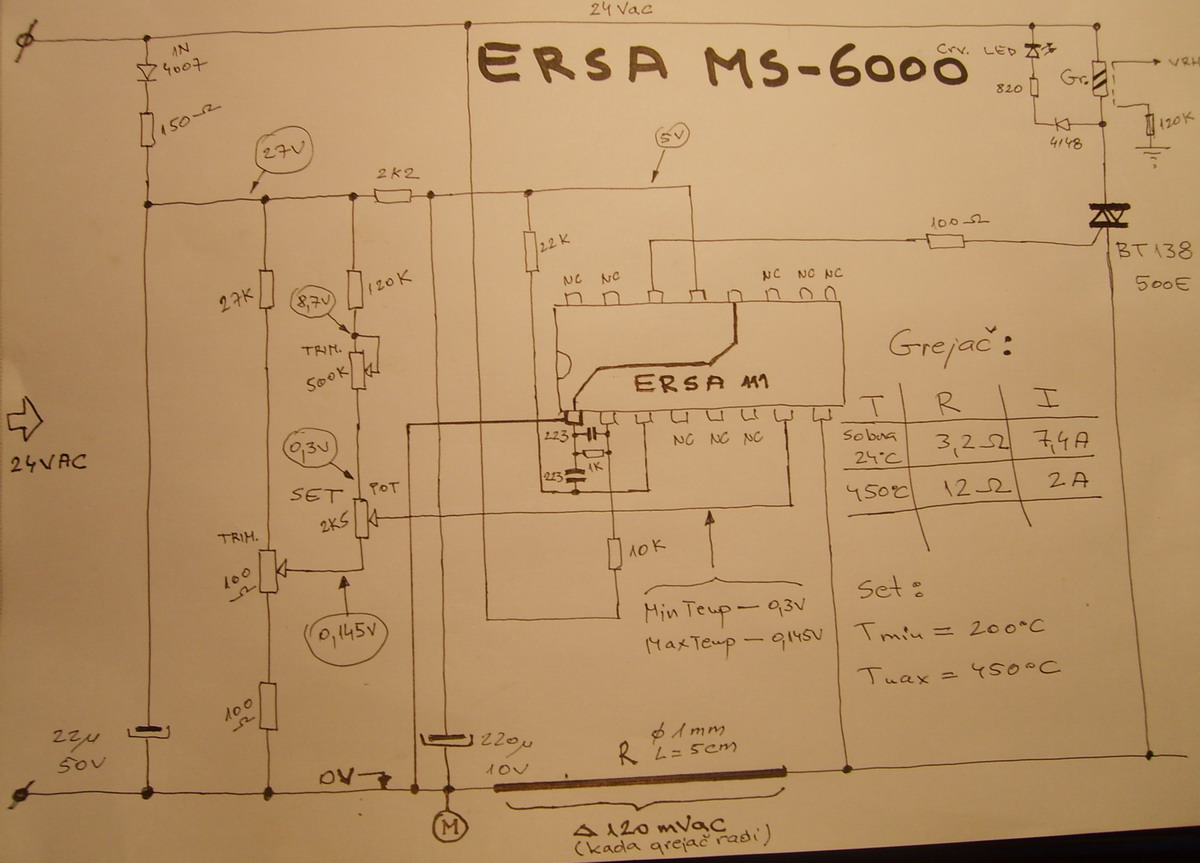 24Vac
ERSA MS-6000
1N
4007
150Ω
27V
2K2
5V
Crv. LED
820
4148
Gr.
VRH
120K
100Ω
BT138
500E
22K
NC
NC
NC
NC
NC
27K
120K
8,7V
TRIM.
500K
ERSA 111
0,3V
SET
POT
2K5
223
1K
223
NC
NC
NC
10K
24VAC
TRIM.
100
Ω
0,145V
100
Ω
Min Temp — 0,3V
Max Temp — 0,145V
Grejač:
T R I
sobna
24°C 3,2Ω 7,4A
450°C 12Ω 2A
Set:
Tmin = 200°C
Tmax = 450°C
22μ
50V
0V
220μ
10V
M
R
φ 1mm
L = 5cm
Δ 120 mVac
(kada grejač radi)